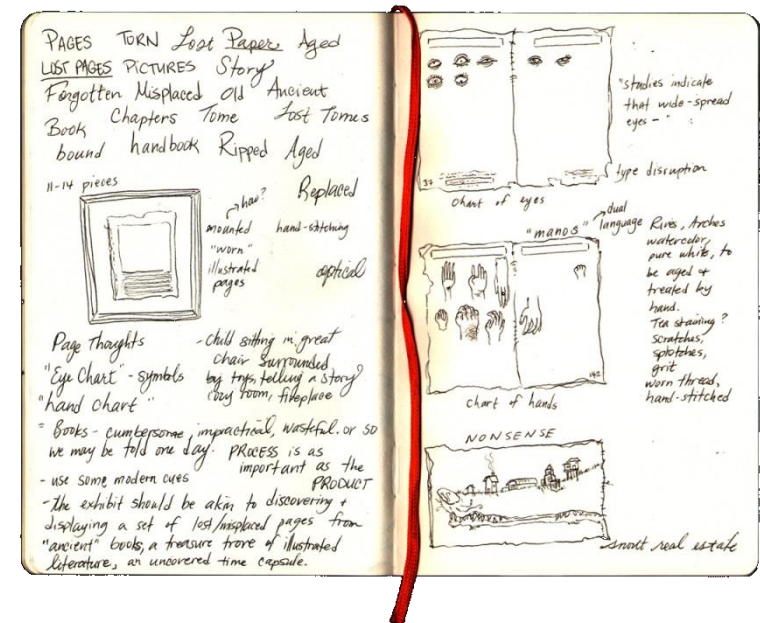 PAGES TORN Lost Paper Aged
LOST PAGES PICTURES Story
Forgotten Misplaced Old Ancient
Book Chapters Tome Lost Tomes
bound handbook Ripped Aged
11-14 pieces
Replaced
how?
mounted hand-stitching
"worn"
illustrated
pages
optical
Page Thoughts
"Eye Chart" - symbols
"hand chart"
- Child sitting in great
chair surrounded
by toys, telling a story
cozy room, fireplace
" Books - cumbersome, impractical, wasteful. or so
we may be told one day.
PROCESS is as
important as the
PRODUCT
- use some modern cues
- the exhibit should be akin to discovering +
displaying a set of lost/misplaced pages from
"ancient" books, a treasure trove of illustrated
literature, an uncovered time capsule.
"studies indicate
that wide-spread
eyes - "
37
type disruption
Chart of eyes
"manos"
dual
language
Rives, Arches
watercolor,
pure white, to
be aged +
treated by
hand.
Tea staining?
scratches,
splotches,
grit
worn thread,
hand-stitched
142
chart of hands
NONSENSE
snout real estate